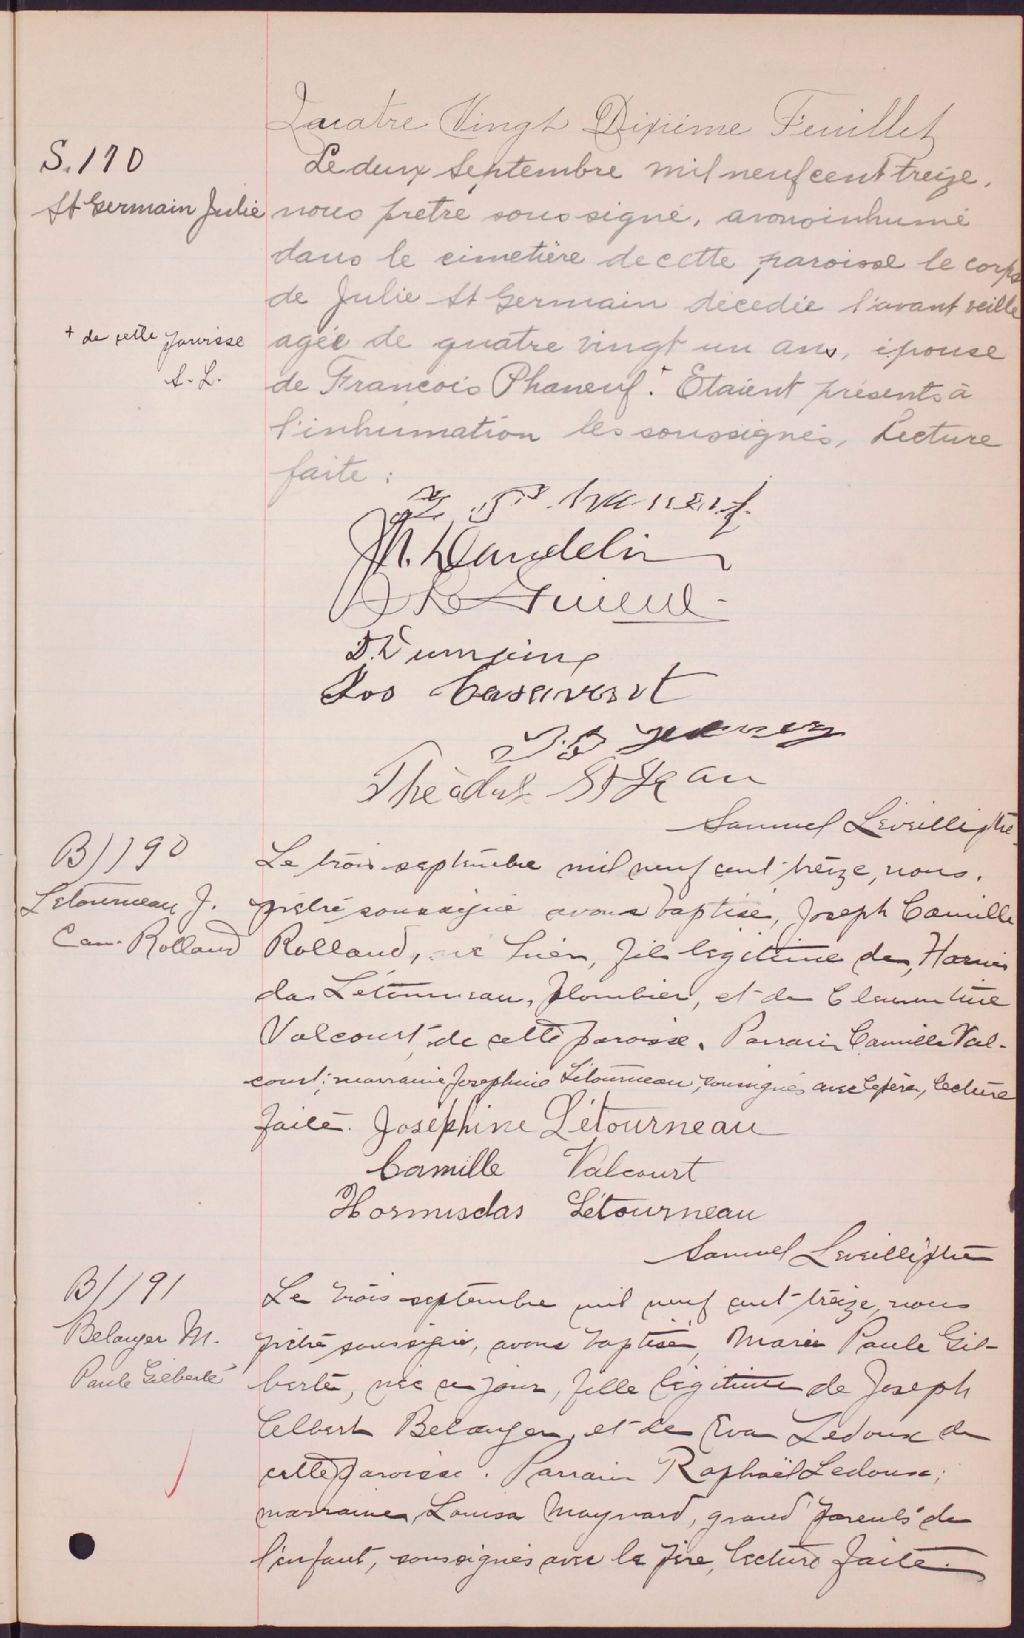 Quatre Vingt Dixième Feuillet
S. 170
St Germain Julie
Le deux Septembre mil neuf cent treize,
nous prêtre soussigné, avons inhumé
dans le cimetière de cette paroisse le corps
de Julie St Germain décédée l'avant veille
agée de quatre vingt un ans, épouse
de Francois Phaneuf.+ Etaient présents à
l'inhumation les soussignés, Lecture
faite :
+ de cette paroisse
S. L.
Phaneuf
Dandelin
Jos Casavant
Théodule St Jean
Samuel Léveillé ptre
B 190
Letourneau J.
Cam. Rolland
Le trois septembre mil neuf cent treize, nous,
prêtre soussigné avons baptisé, Joseph Camille
Rolland, né hier, fils légitime de, Hormis
das Létourneau, plombier, et de Clementine
Valcourt, de cette paroisse. Parrain Camille Val-
court; marraine Josephine Létourneau, soussignés avec le père, lecture
faite. Joséphine Létourneau
Camille Valcourt
Hormisdas Létourneau
Samuel Leveillé ptre
B 191
Belanger M.
Paule Gilberte
Le trois septembre mil neuf cent treize, nous
prêtre soussigné, avons baptisé, Marie Paule Gil-
berte, née ce jour, fille légitime de Joseph
Albert Belanger, et de Eva Ledoux de
cette paroisse. Parrain Raphaël Ledoux;
marraine, Louisa Maynard, grand parents de
l'enfant, soussignés avec le père, lecture faite.